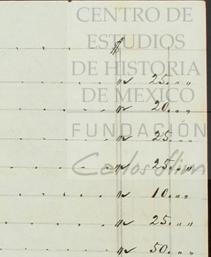 CENTRO DE
ESTUDIOS
DE HISTORIA
DE MEXICO
FUNDACIÓN
Carlos Slim
$
" 25. " "
" 20. " "
" 25. " "
" 25. " "
" 10. " "
" 25. " "
" 50. " "